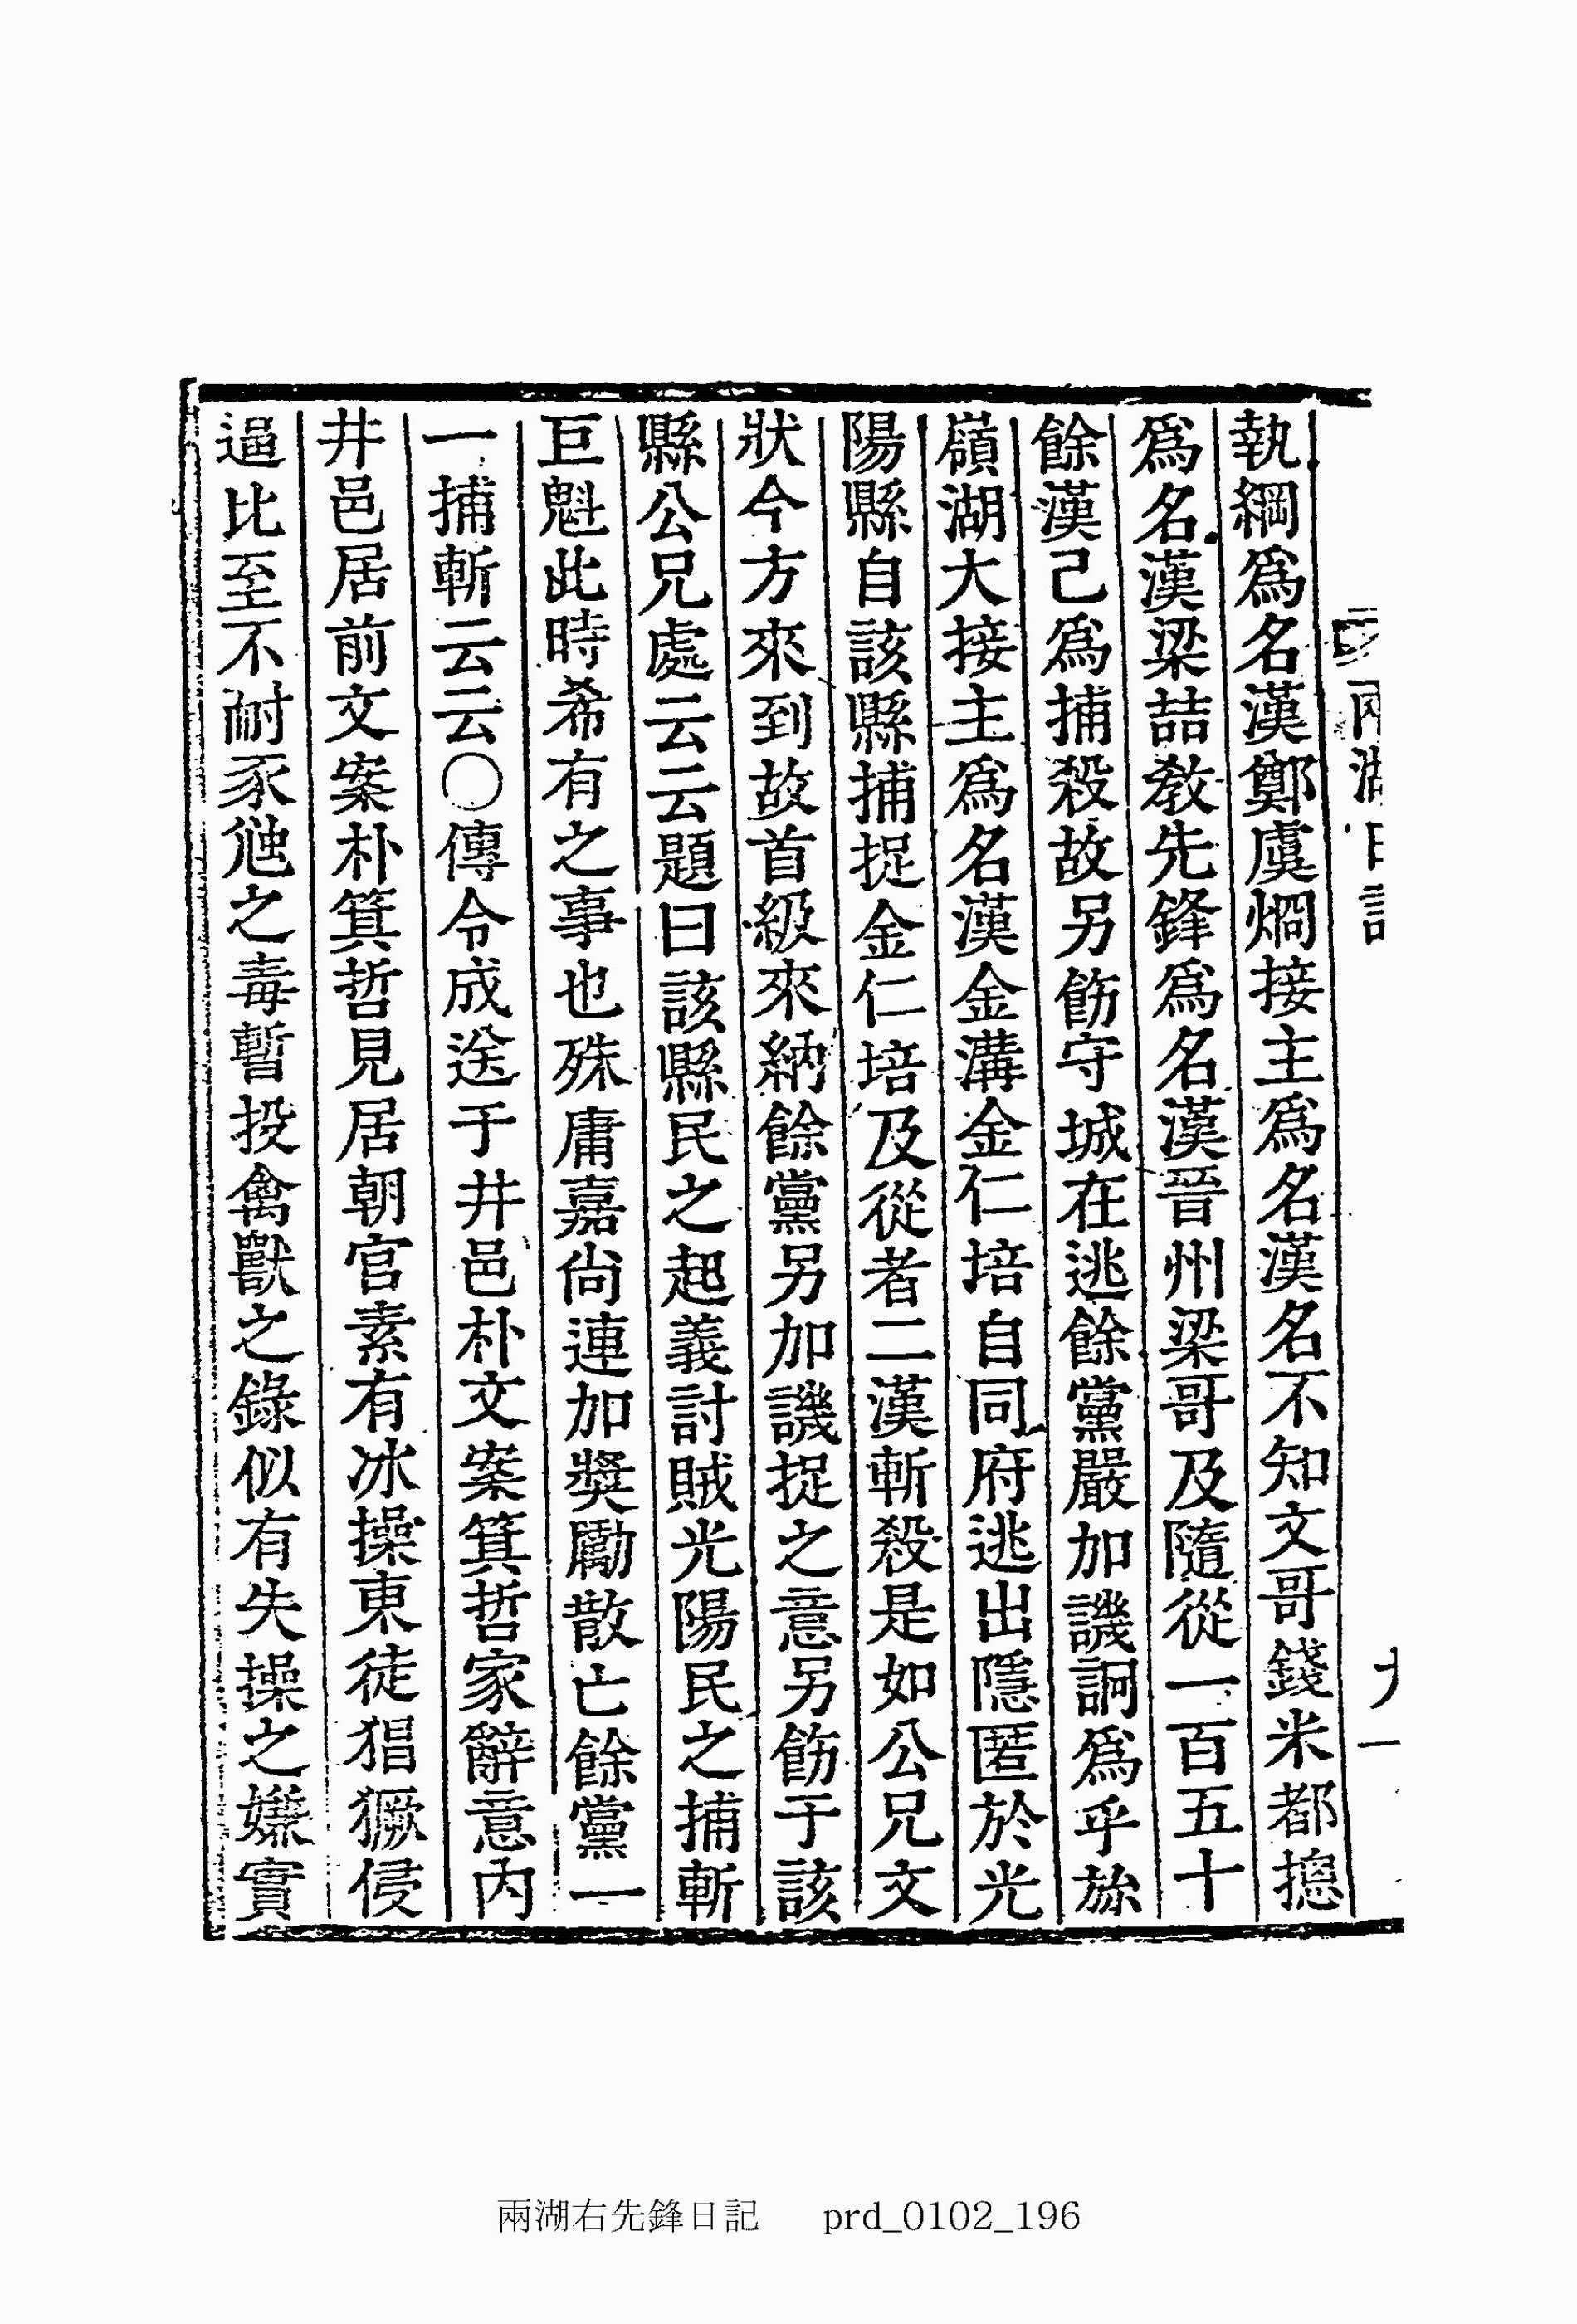 兩湖日記
九一
執綱爲名漢鄭虞烱接主爲名漢名不知文哥錢米都摠
爲名漢梁喆敎先鋒爲名漢晉州梁哥及隨從一百五十
餘漢己爲捕殺故另飭守城在逃餘黨嚴加譏詗爲乎旀
嶺湖大接主爲名漢金溝金仁培自同府逃出隱匿於光
陽縣自該縣捕捉金仁培及從者二漢斬殺是如公兄文
狀今方來到故首級來納餘黨另加譏捉之意另飭于該
縣公兄處云云題曰該縣民之起義討賊光陽民之捕斬
巨魁此時希有之事也殊庸嘉尙連加奬勵散亡餘黨一
一捕斬云云〇傳令成送于井邑朴文案箕哲家辭意內
井邑居前文案朴箕哲見居朝官素有冰操東徒猖獗侵
逼比至不耐豕虺之毒暫投禽獸之錄似有失操之嫌實
兩湖右先鋒日記 prd_0102_196